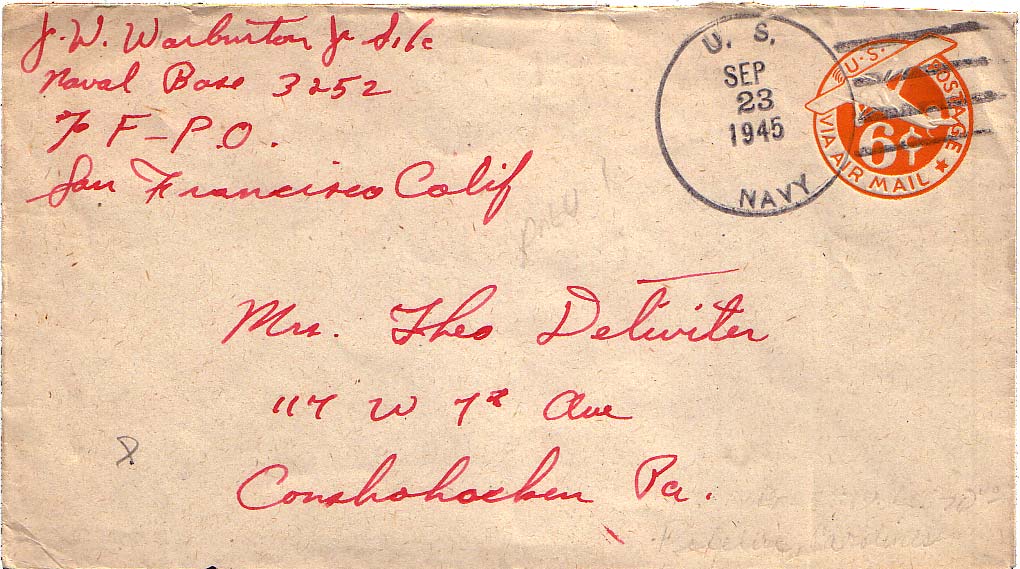 J. W. Warburton Jr S.1/c
Naval Base 3252
℅ F-P.O.
San Francisco Calif
U. S.
SEP
23
1945
NAVY
U.S. POSTAGE
VIA AIR MAIL
6¢
Mrs. Theo Detwiter
117 W 7th Ave
Conshohocken Pa.